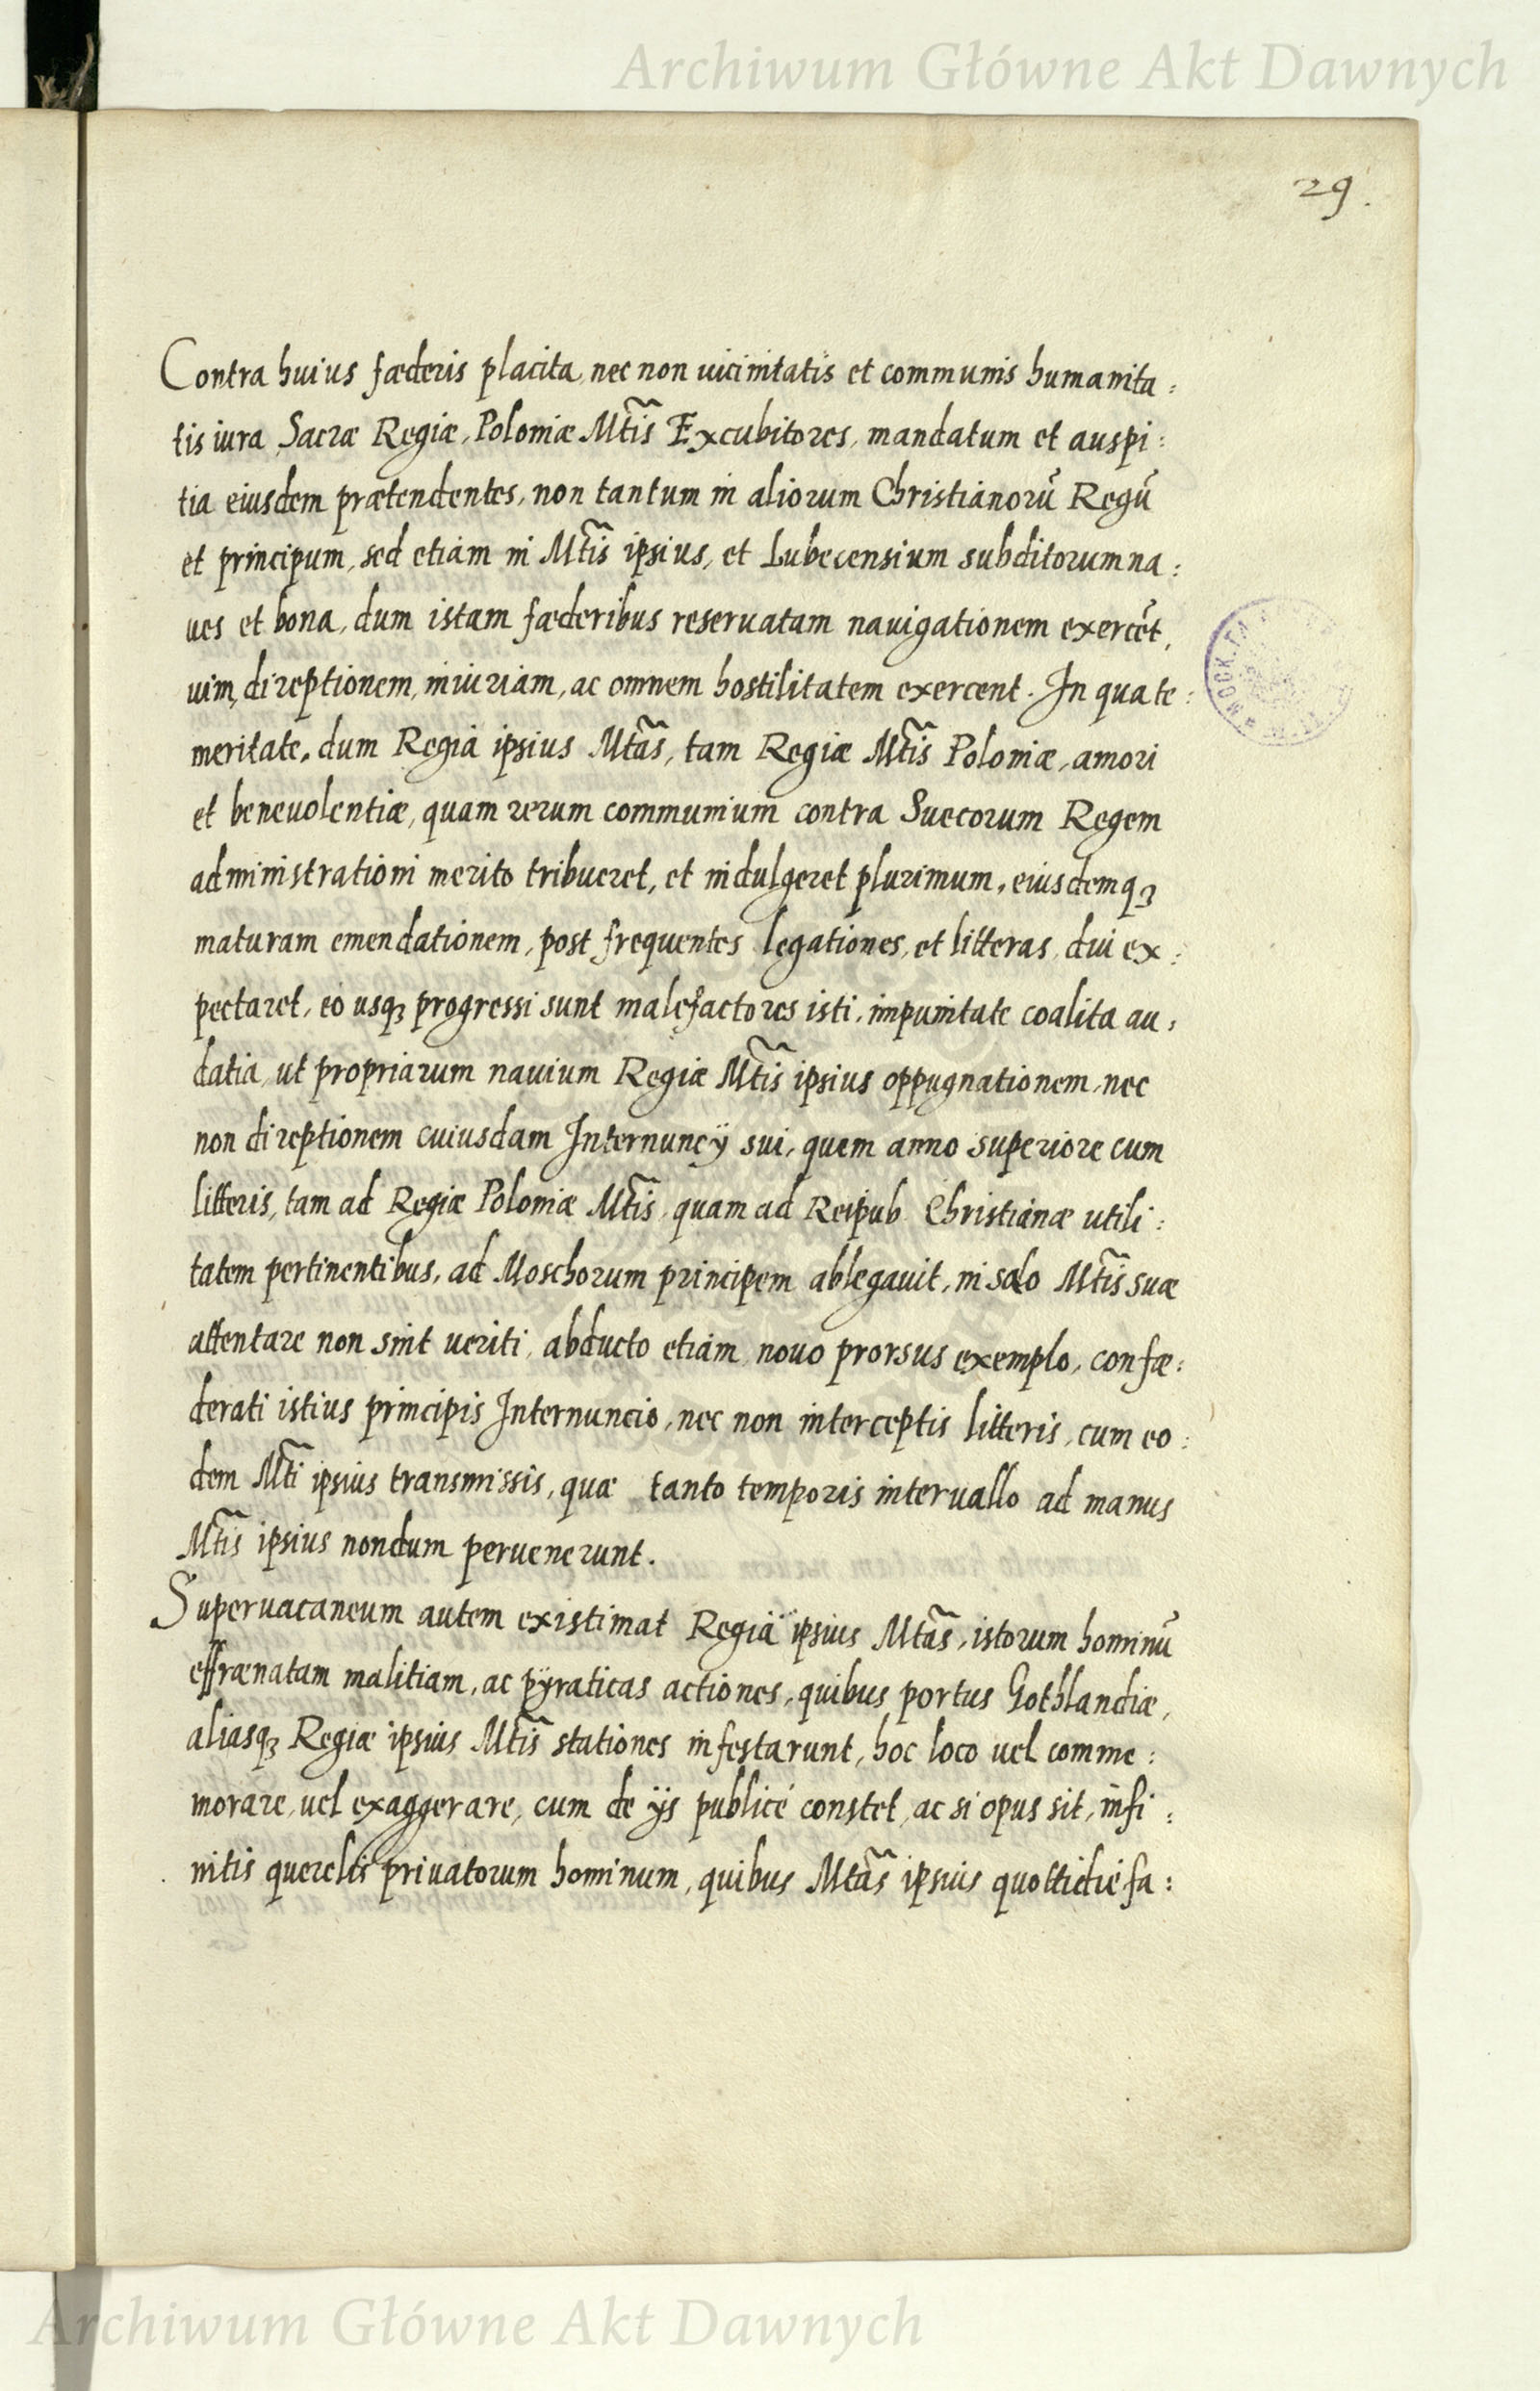 Archiwum Główne Akt Dawnych
29.
Contra huius fœderis placita, nec non uicinitatis et communis humanita:
tis iura, Sacræ Regiæ, Poloniæ Mt͠is Excubitores, mandatum et auspi:
tia eiusdem prætendentes, non tantum in aliorum Christianorū Regū
et principum, sed etiam in Mt͠is ipsius, et Lubecensium subditorum na:
ues et bona, dum istam fœderibus reseruatam nauigationem exercēt,
uim, direptionem, iniuriam, ac omnem hostilitatem exercent. In qua te:
meritate, dum Regia ipsius Mt͠as, tam Regiæ Mt͠is Poloniæ, amori
et beneuolentiæ, quam rerum communium contra Suecorum Regem
administrationi merito tribueret, et indulgeret plurimum, eiusdemqꝫ
maturam emendationem, post frequentes legationes, et litteras, diu ex:
pectaret, eò usqꝫ progressi sunt malefactores isti, impunitate coalita au:
datia, ut propriarum nauium Regiæ Mt͠is ipsius oppugnationem, nec
non direptionem cuiusdam Internuncÿ sui, quem anno superiore cum
litteris, tam ad Regiæ Poloniæ Mt͠is, quam ad Reipub. Christianæ utili:
tatem pertinentibus, ad Moschorum principem ablegauit, in salo Mt͠is suæ
attentare non sint ueriti, abducto etiam, nouo prorsus exemplo, confœ:
derati istius principis Internuncio, nec non interceptis litteris, cum eo:
dem Mt͠i ipsius transmissis, quæ tanto temporis interuallo ad manus
Mt͠is ipsius nondum peruenerunt.
Superuacaneum autem existimat Regia ipsius Mt͠as, istorum hominū
effrænatam malitiam, ac pÿraticas actiones, quibus portus Gothlandiæ,
aliasqꝫ Regiæ ipsius Mt͠is stationes infestarunt, hoc loco uel comme:
morare, uel exaggerare, cum de ÿs publicè constet, ac si opus sit, infi:
nitis querelis priuatorum hominum, quibus Mt͠as ipsius quottidiè fa:
Archiwum Główne Akt Dawnych